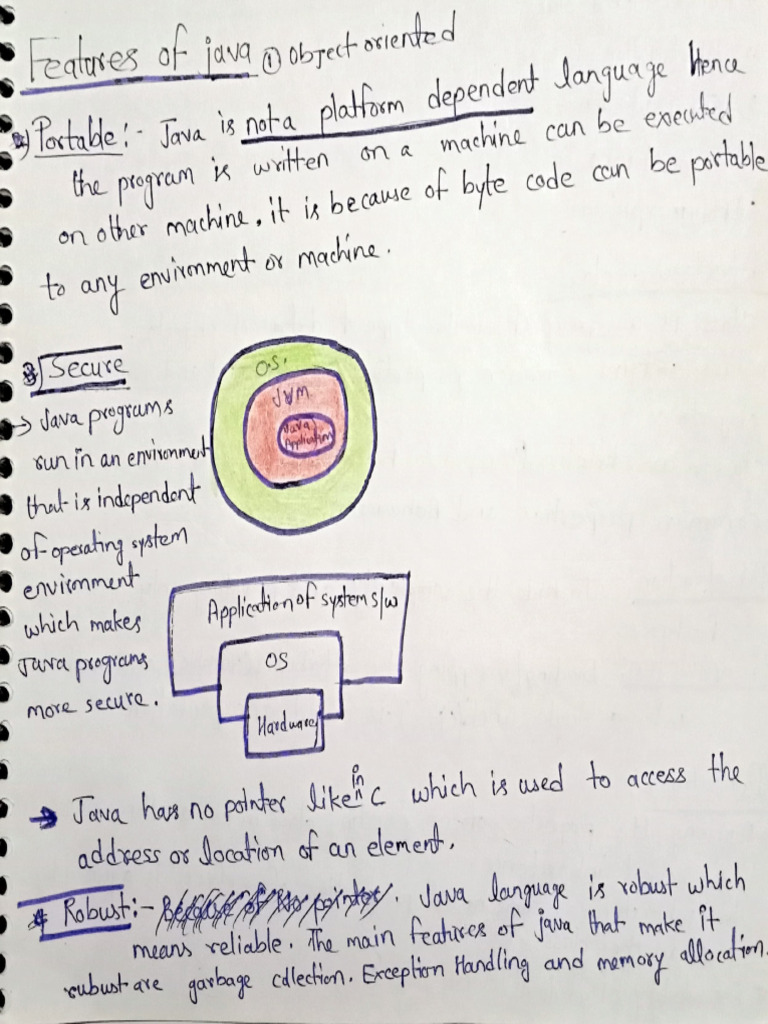 Features of java ① Object oriented
2) Portable:- Java is not a platform dependent language Hence
the program is written on a machine can be executed
on other machine. it is because of byte code can be portable
to any environment or machine.
3) Secure
→ Java programs
run in an environment
that is independent
of operating system
envirnment
which makes
Java programs
more secure.
O.S.
JVM
Java
Application
Application of system s/w
OS
Hardware
→ Java has no pointer like in C which is used to access the
address or location of an element.
4 Robust:- Because of No pointer. Java language is robust which
means reliable. The main features of java that make it
rubust are garbage cdlection. Exception Handling and memory allocation.